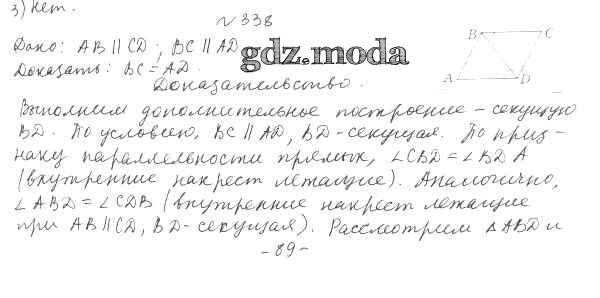 3) Нет.
№ 338
Дано: AB || CD; BC || AD
gdz.moda
Доказать: BC = AD.
Доказательство.
B C
A D
Выполним дополнительное построение - секущую
BD. По условею, BC || AD, BD - секущая. По приз-
наку параллельности прямых, ∠CBD = ∠BDA
(внутренние накрест лежащие). Аналогично,
∠ABD = ∠CDB (внутренние накрест лежащие
при AB || CD, BD - секущая). Рассмотрим △ABD и
- 89 -